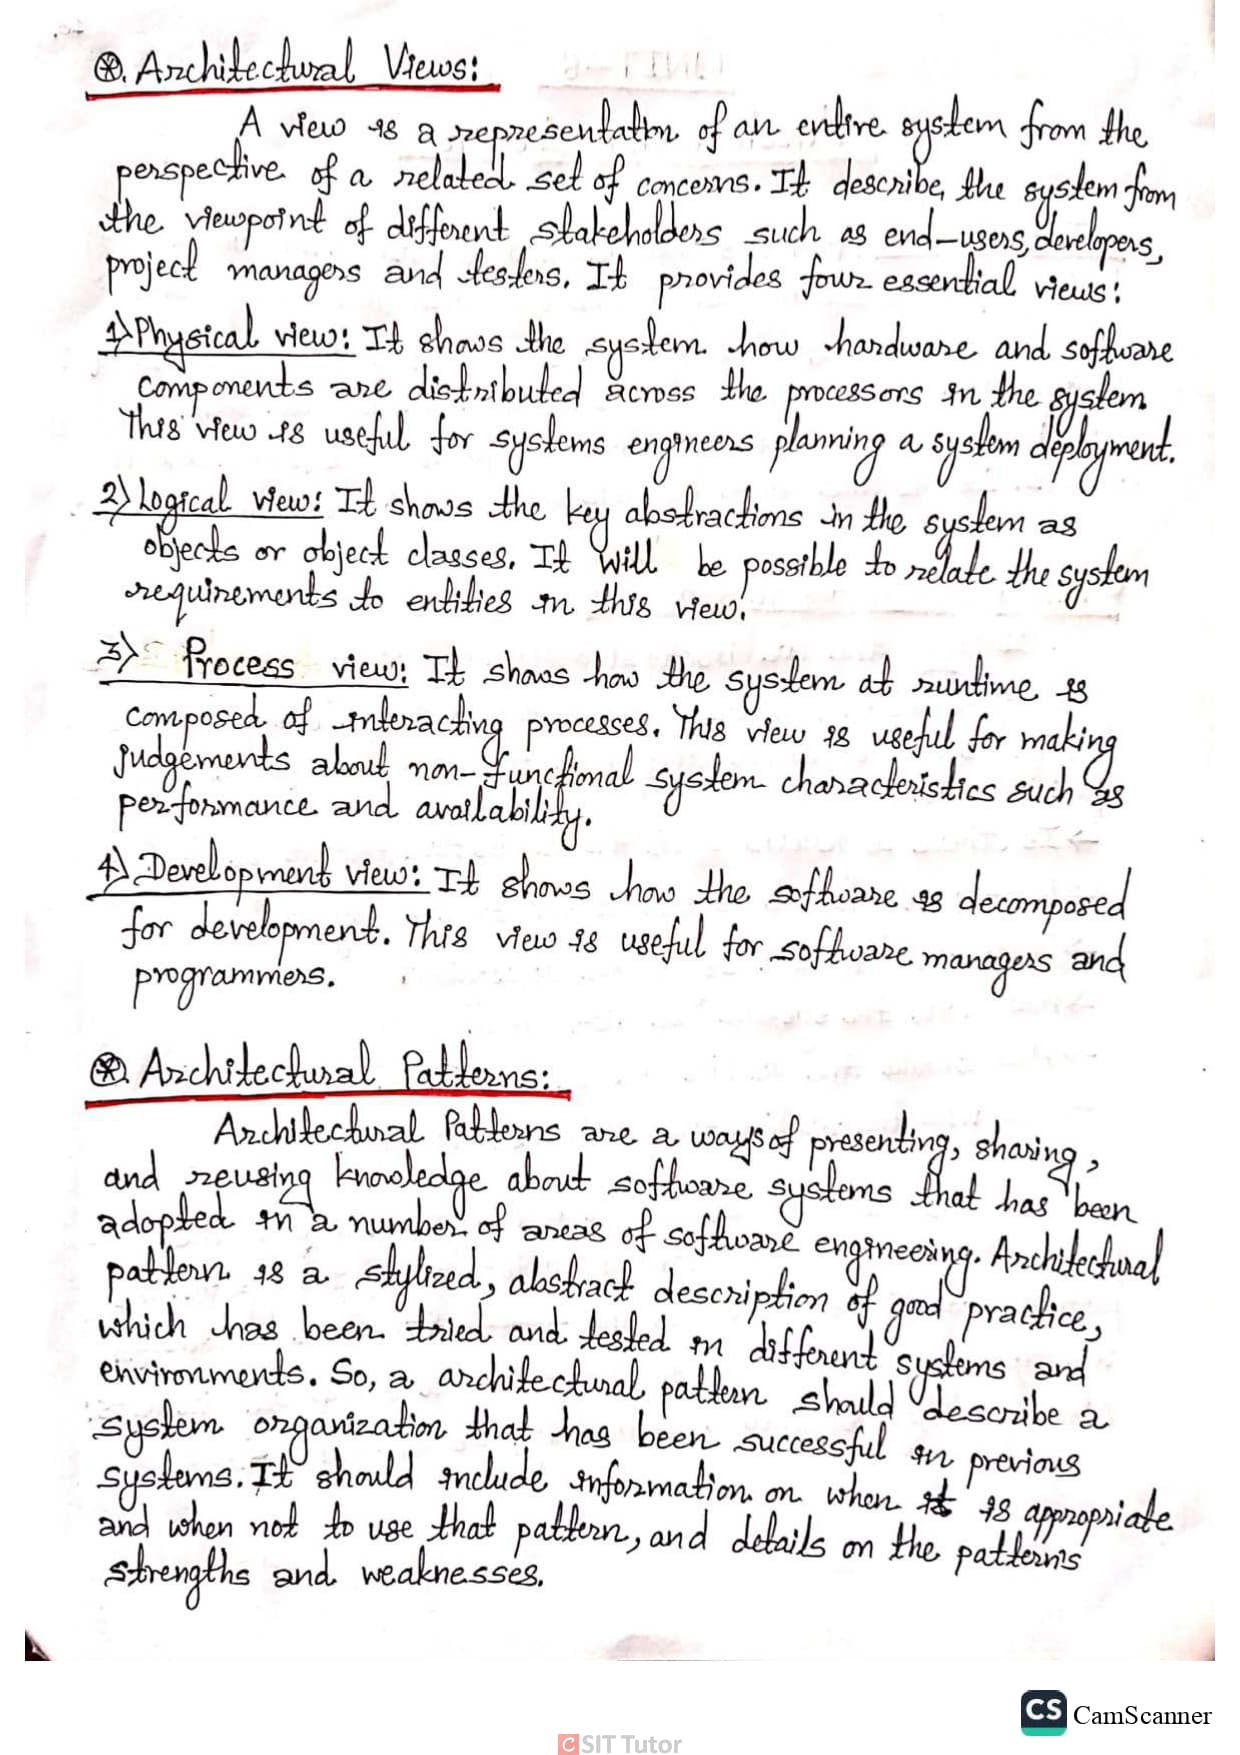 ⊛. Architectural Views:
A view is a representation of an entire system from the
perspective of a related set of concerns. It describe, the system from
the viewpoint of different stakeholders such as end-users, developers,
project managers and testers. It provides four essential views:
1) Physical view: It shows the system how hardware and software
components are distributed across the processors in the system.
This view is useful for systems engineers planning a system deployment.
2) Logical view: It shows the key abstractions in the system as
objects or object classes. It will be possible to relate the system
requirements to entities in this view.
3) Process view: It shows how the system at runtime is
composed of interacting processes. This view is useful for making
judgements about non-functional system characteristics such as
performance and availability.
4) Development view: It shows how the software is decomposed
for development. This view is useful for software managers and
programmers.
⊛. Architectural Patterns:
Architectural Patterns are a ways of presenting, sharing,
and reusing knowledge about software systems that has been
adopted in a number of areas of software engineering. Architectural
pattern is a stylized, abstract description of good practice,
which has been tried and tested in different systems and
environments. So, a architectural pattern should describe a
system organization that has been successful in previous
systems. It should include information on when it is appropriate
and when not to use that pattern, and details on the pattern's
strengths and weaknesses.
CS CamScanner
CSIT Tutor